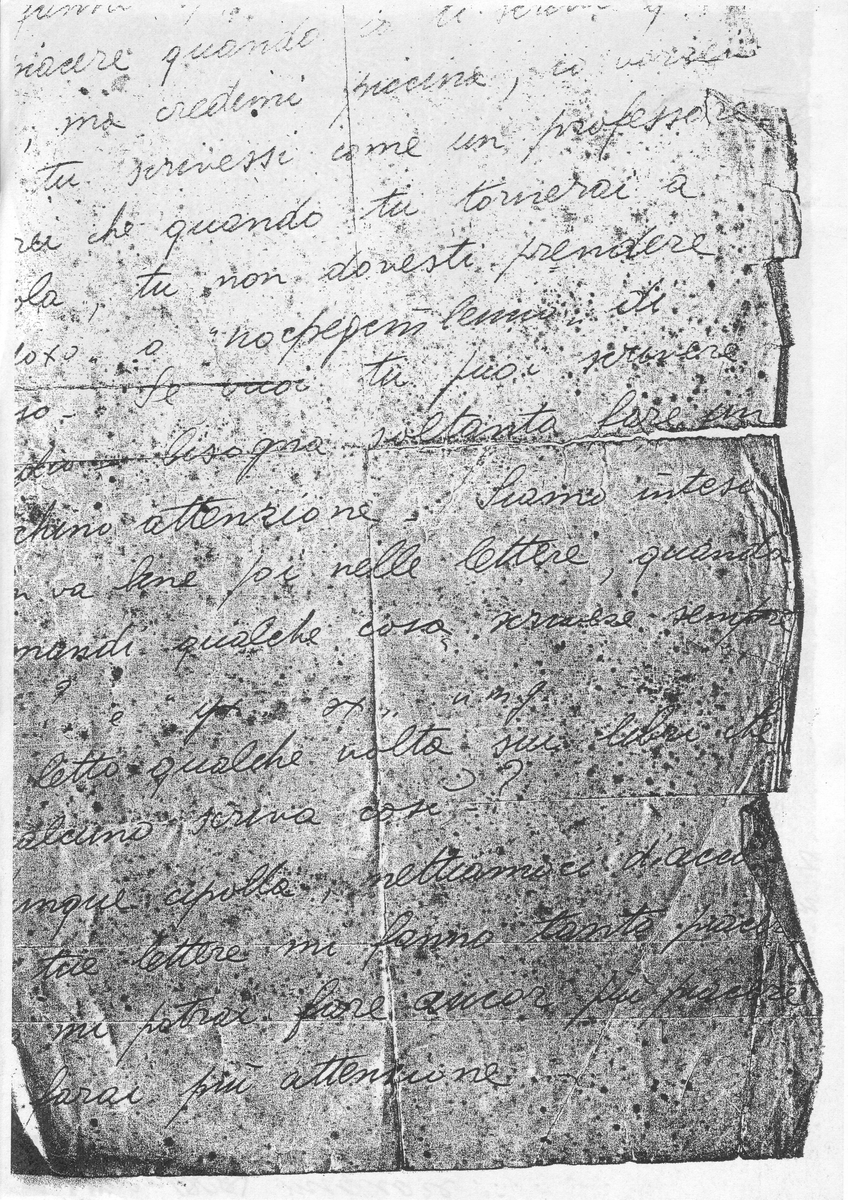 piacere quando io ti scrivi
, ma credimi piccina, io vorrei
tu scrivessi come un professore.
rei che quando tu tornerai a
ola, tu non dovesti prendere
o " di
io - Se vuoi tu puoi scrivere
bisogna soltanto fare un
chino attenzione - Siamo intesi
n va bene poi nelle lettere, quando
mandi qualche cosa, scrivere sempre
? è
letto qualche volta sui libri che
alcuno scriva così - ?
unque cipolla, mettiamoci d'acco
tue lettere mi fanno tanto piacere
mi potrai fare ancor più piacere
farai più attenzione -